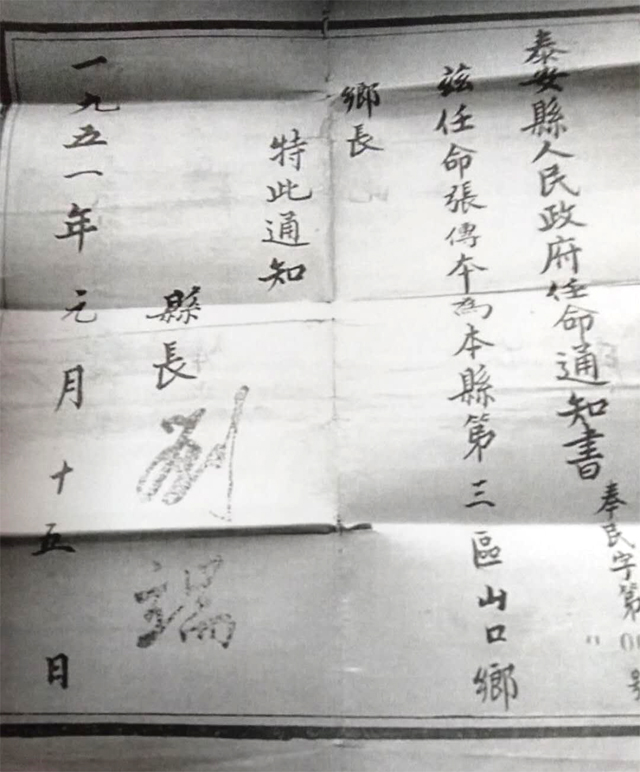 泰安縣人民政府任命通知書
奉民字第00號
茲任命張傳本為本縣第三區山口鄉
鄉長
特此通知
縣長 劉瑞
一九五一年元月十五日